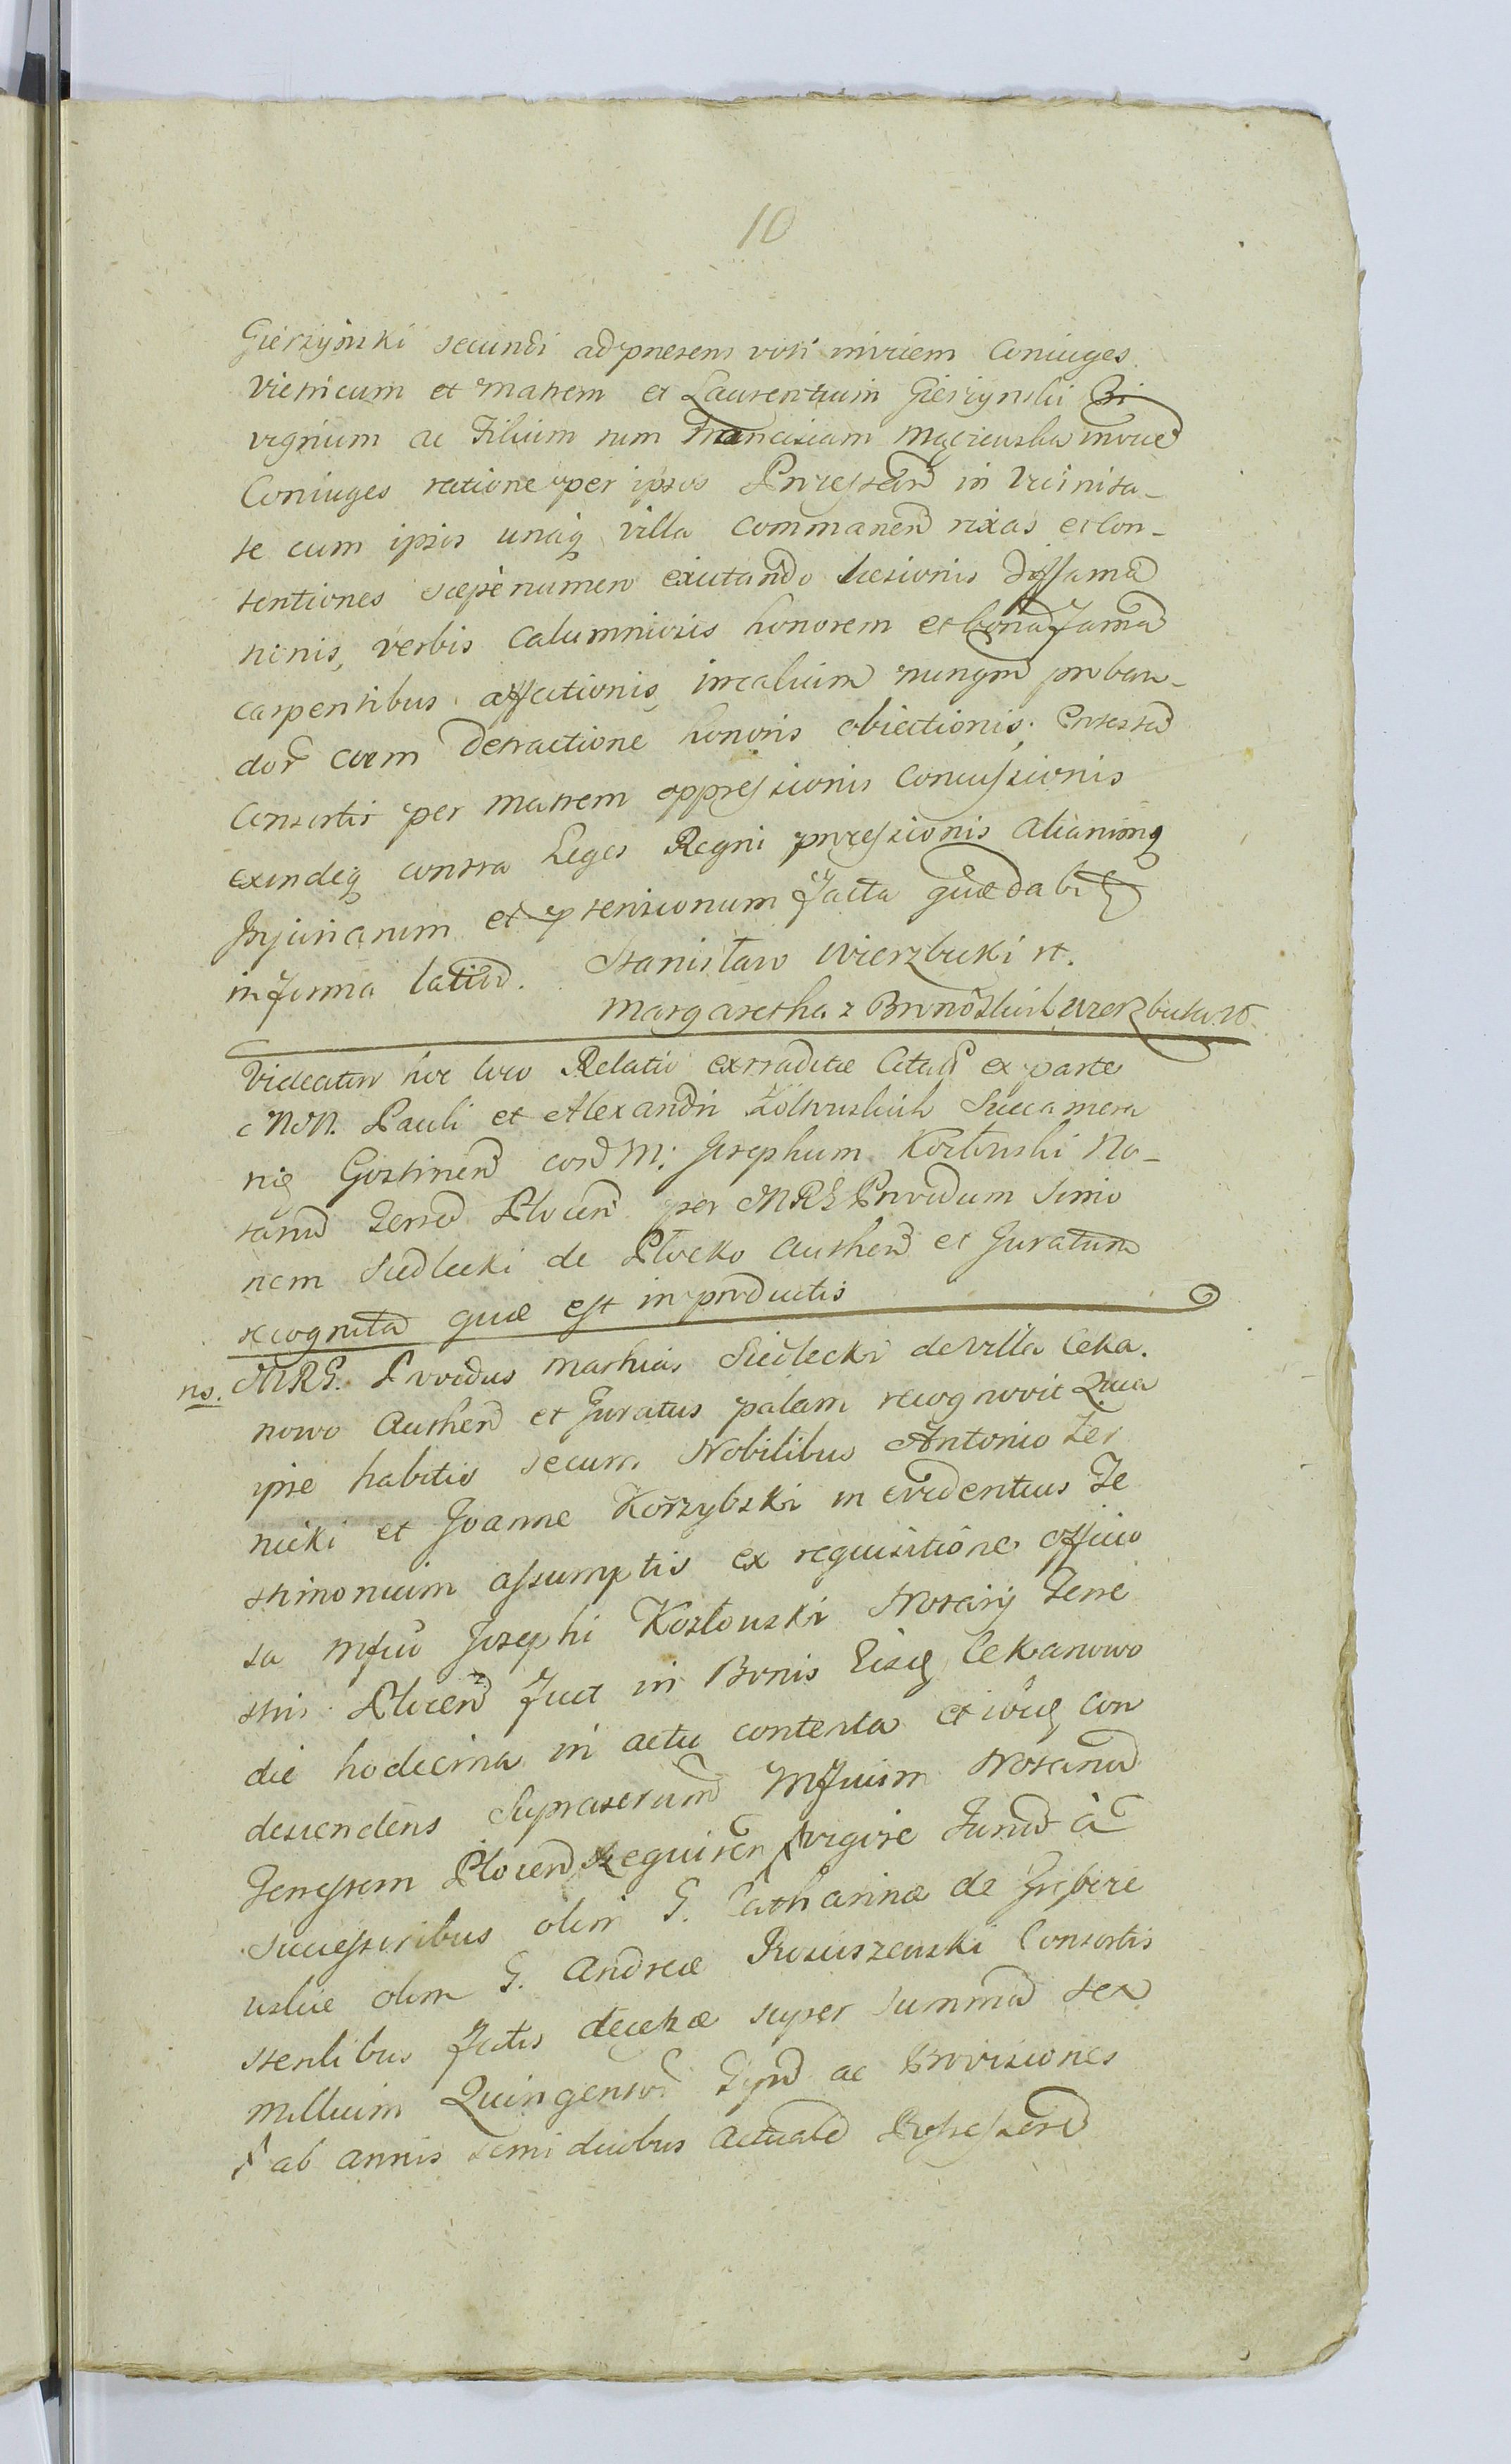 10
Gierzyński secundi ad praesens voti invicem Coniuges
Vietricum et matrem et Laurentium Gierzynski Pri
vignum ac Filium tum Francisicam Mącziewska invicē
Coniuges ratione per ipsos Protestan̄ in Vicinita-
te cum ipsis unaq villa Commanen̄ rixas et Con-
tentiones saepe numero excitando laesionis diffama
tionis, verbis Calumniosis honorem et bonā Famā
carpentibus affectionis, irealium nunqm̄ proban-
dor̄ cum detractione honoris obiectionis, Protestā
Consortis per matrem oppressionis Concussionis
exindeq contra Leges Regni processionis Aliarumq
Injuriarum et ptensionum facta quae dabitr
in forma latiori. Stanisław Wierzbicki st.
Margaretha z Wierzbicka
Videatur hoc loco Relatio extraditae Citatis ex parte
MM. Pauli et Alexandri Żółtowskich Succamera
rig Gostinen̄ cor̄ M: Josephum Kozłowski No-
tariū Terrē Plocen̄ per MRG Providum Simo
nem Siedlecki de Plocko Authen̄ et Juratum
recognita quae est in productis
ns. MRG. Providus Mathias Siedlecki de villa Ceka.
nowo Authen̄ et Juratus palam recognovit Quia
ipse habitis secum Nobilibus Antonio Ze
nicki et Joanne Korzybski in evidentius Te
stimonium assumptis ex requisitione officio
sa Mfici Josephi Kozłowski Notarij Terre
stris Plocen̄ fuit in Bonis Cekanowo
die hodierna in actu contenta et ibiq con
descendens Mficum Notariū
Terrestrem Plocen̄ Requiren̄
Successoribus olim G. Catharinae de
uskie olim G. Andreae Prosiszewski Consortis
sterilibus super summā sex
millium Quingentor̄ ac Provisiones
ab annis duobus actualē Possessorē